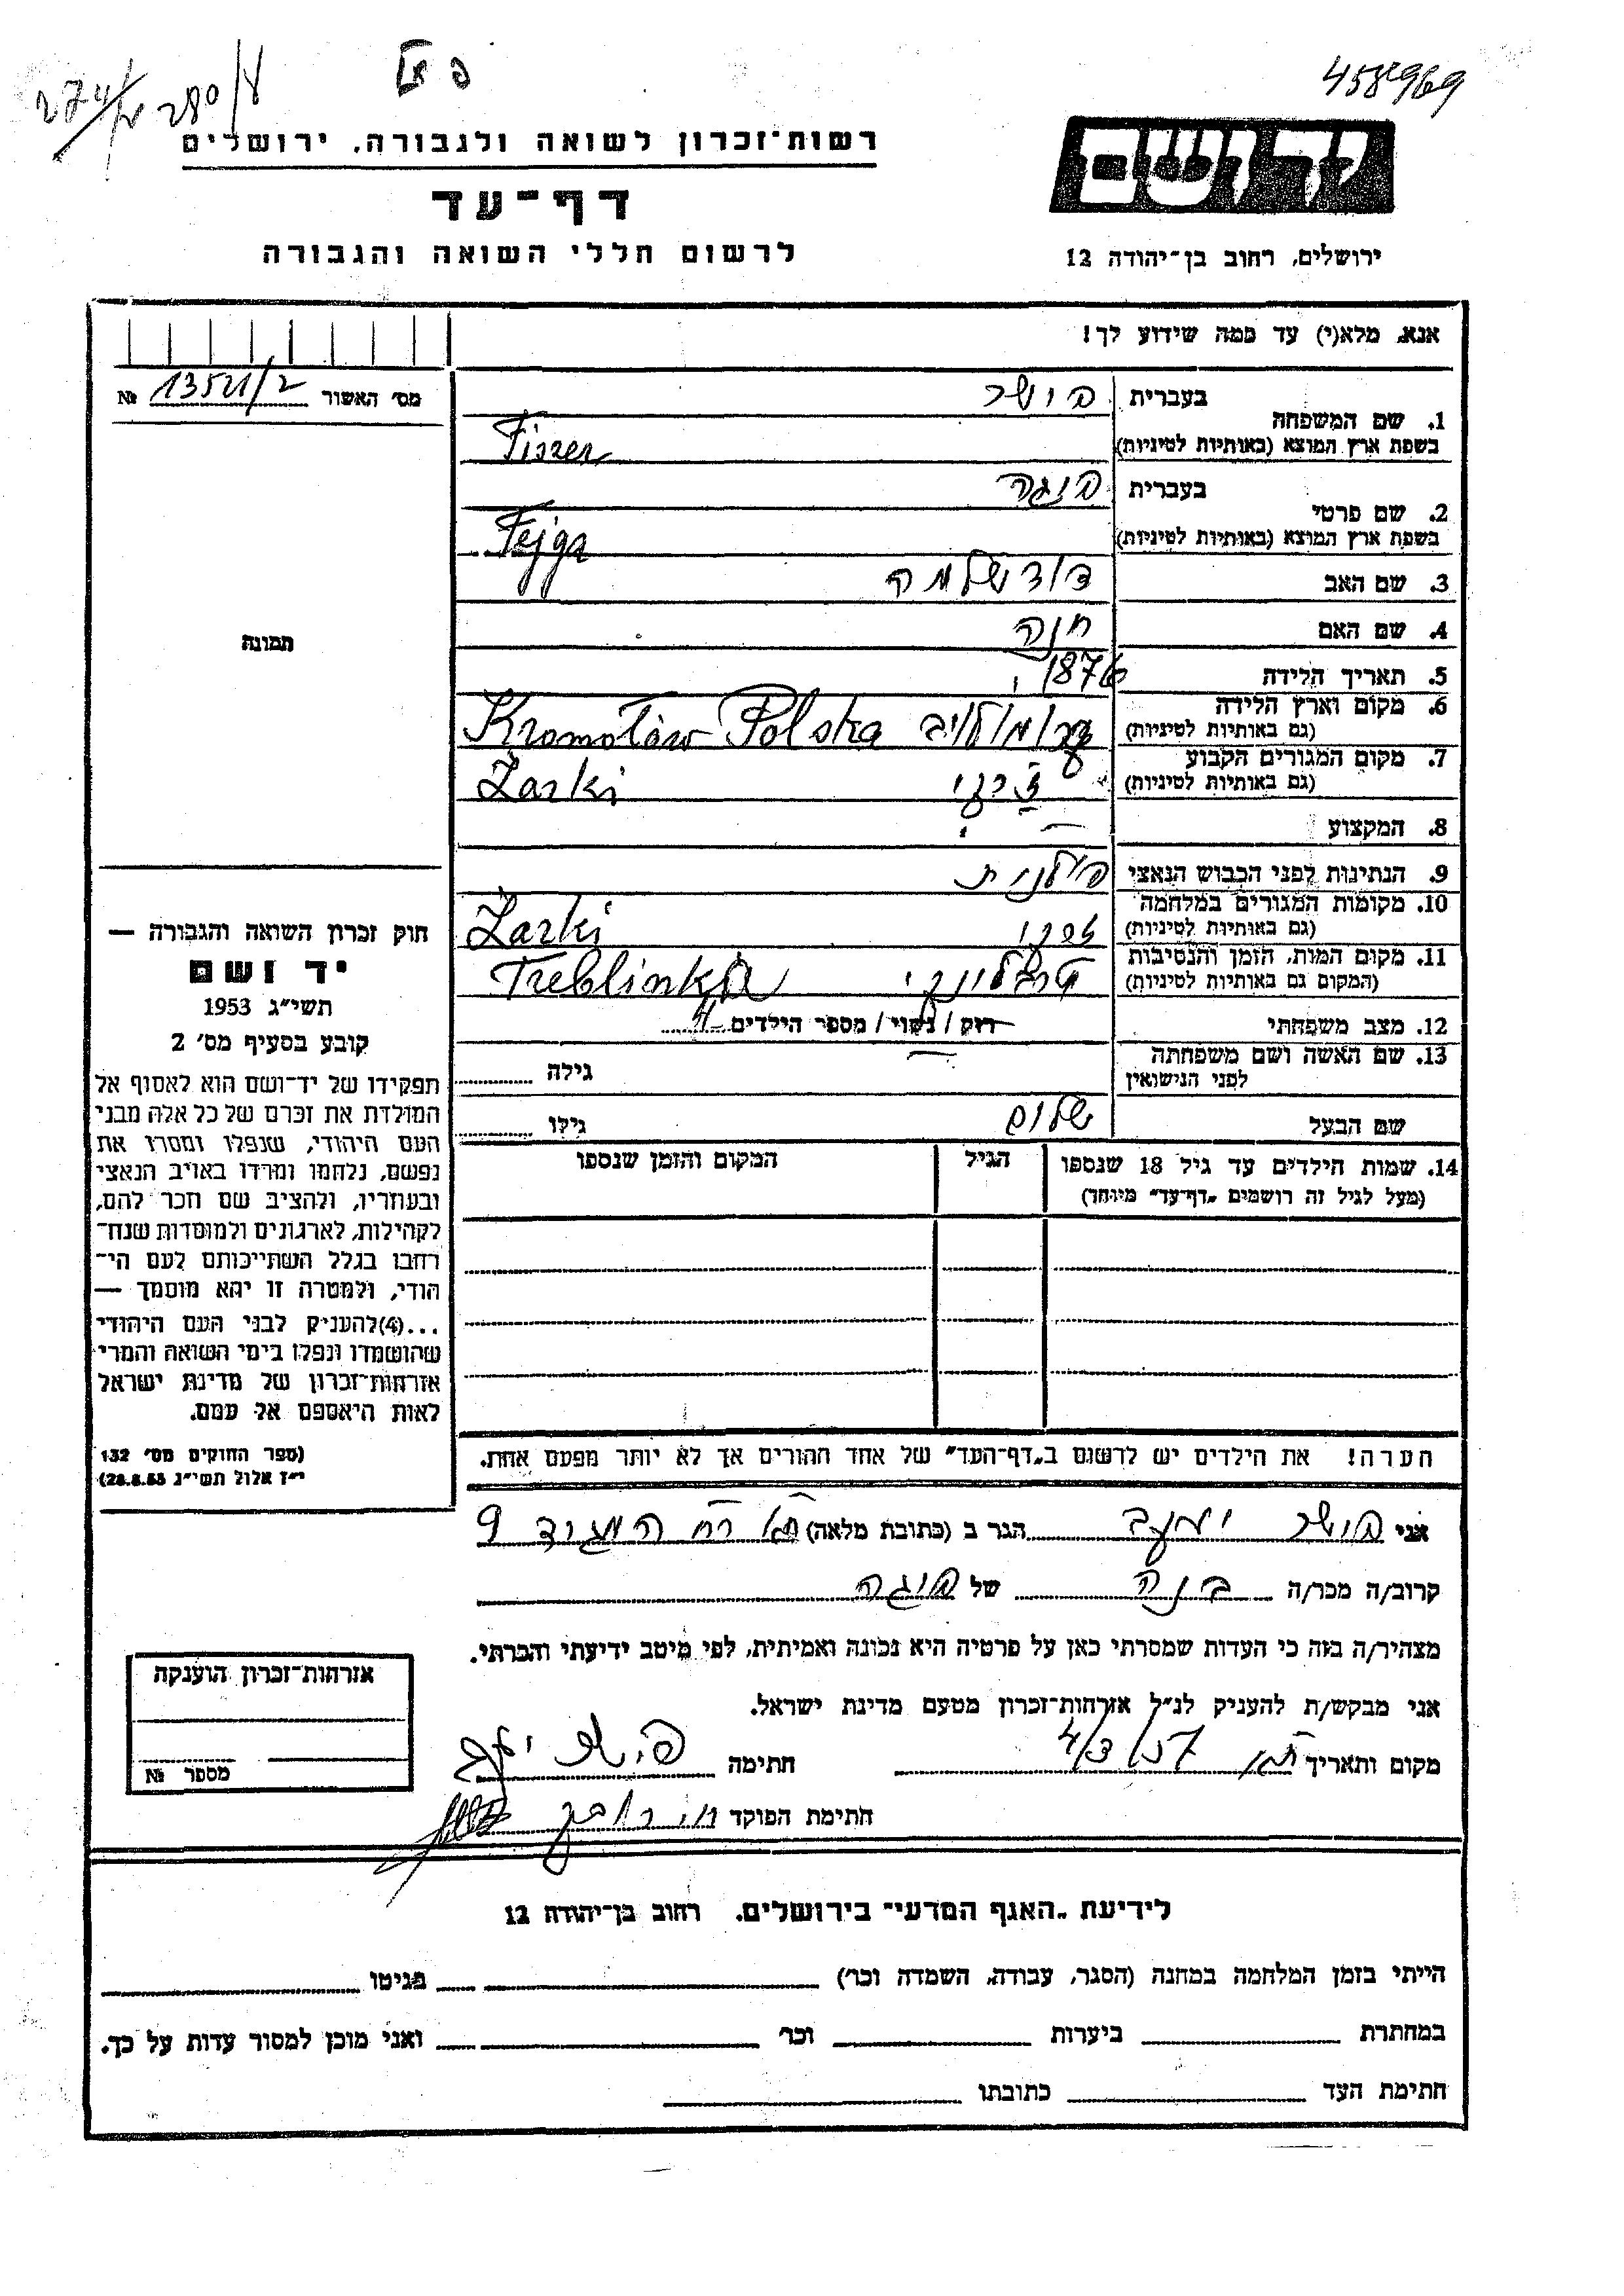 458969
280/ע
רשות־זכרון לשואה ולגבורה, ירושלים
יד ושם
דף־עד
לרשום חללי השואה והגבורה
ירושלים, רחוב בן־יהודה 12
אנא, מלא(י) עד כמה שידוע לך!
מס' האשור № 13521/2
1. שם המשפחה בעברית פישר
בשפת ארץ המוצא (באותיות לטיניות) Fiszer
2. שם פרטי בעברית פיגה
בשפת ארץ המוצא (באותיות לטיניות) Fejga
3. שם האב דוד שלמה
4. שם האם חנה
תמונה
5. תאריך הלידה 1876
6. מקום וארץ הלידה
(גם באותיות לטיניות) Kromołów Polska
7. מקום המגורים הקבוע
(גם באותיות לטיניות) ז'רקי Żarki
8. המקצוע —
9. הנתינות לפני הכבוש הנאצי פולנית
10. מקומות המגורים במלחמה
(גם באותיות לטיניות) זרקי Żarki
11. מקום המות, הזמן והנסיבות
(המקום גם באותיות לטיניות) טרבלינקי Treblinka
12. מצב משפחתי רוק / נשוי / מספר הילדים 4
13. שם האשה ושם משפחתה
לפני הנישואין — גילה
שם הבעל שלום גילו
14. שמות הילדים עד גיל 18 שנספו הגיל המקום והזמן שנספו
(מעל לגיל זה רושמים „דף־עד" מיוחד)
הערה! את הילדים יש לרשום ב„דף־העד" של אחד ההורים אך לא יותר מפעם אחת.
חוק זכרון השואה והגבורה —
יד ושם
תשי"ג 1953
קובע בסעיף מס' 2
תפקידו של יד־ושם הוא לאסוף אל
המולדת את זכרם של כל אלה מבני
העם היהודי, שנפלו ומסרו את
נפשם, נלחמו ומרדו באויב הנאצי
ובעוזריו, ולהציב שם וזכר להם,
לקהילות, לארגונים ולמוסדות שנח־
רבו בגלל השתייכותם לעם הי־
הודי, ולמטרה זו יהא מוסמך —
...(4)להעניק לבני העם היהודי
שהושמדו ונפלו בימי השואה והמרי
אזרחות־זכרון של מדינת ישראל
לאות היאספם אל עמם.
(ספר החוקים מס' 132
י"ז אלול תשי"ג 28.8.53)
אני פישר יעקב הגר ב (כתובת מלאה) ת"א רח המגיד 9
קרוב/ה מכר/ה בנה של פיגה
מצהיר/ה בזה כי העדות שמסרתי כאן על פרטיה היא נכונה ואמיתית, לפי מיטב ידיעתי והכרתי.
אני מבקש/ת להעניק לנ"ל אזרחות־זכרון מטעם מדינת ישראל.
מקום ותאריך 4/3/57 חתימה פישר יעקב
חתימת הפוקד
אזרחות־זכרון הוענקה
מספר №
לידיעת „האגף המדעי" בירושלים, רחוב בן־יהודה 12
הייתי בזמן המלחמה במחנה (הסגר, עבודה, השמדה וכו') בגיטו
במחתרת ביערות וכו' ואני מוכן למסור עדות על כך.
חתימת העד כתובתו